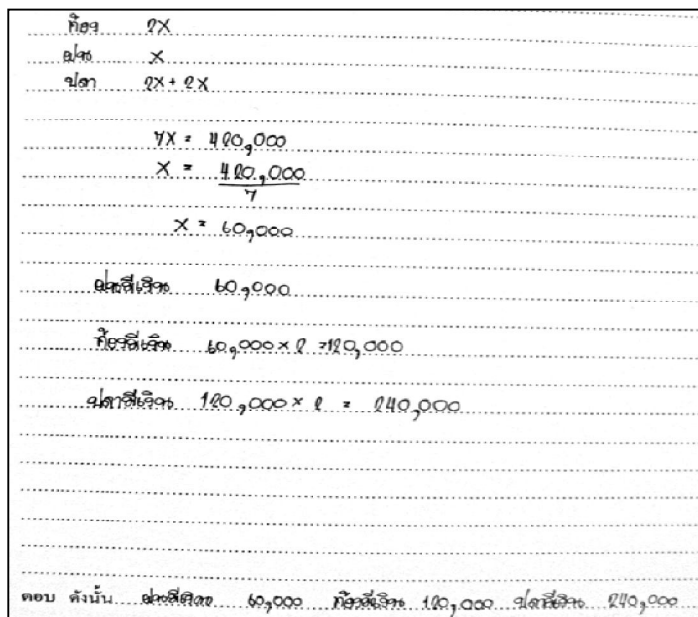 ก้อง 2X
ฝน X
ปลา 2X + 2X
7X = 420,000
X = 420,000
7
X = 60,000
ฝนมีเงิน 60,000
ก้องมีเงิน 60,000 × 2 = 120,000
ปลามีเงิน 120,000 × 2 = 240,000
ตอบ ดังนั้น ฝนมีเงิน 60,000 ก้องมีเงิน 120,000 ปลามีเงิน 240,000